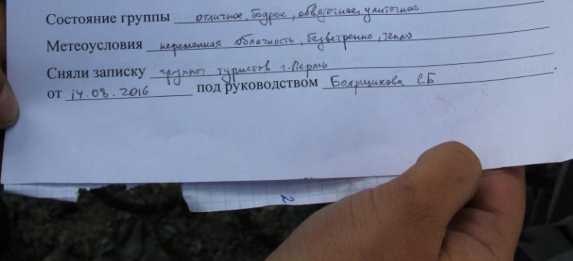 Состояние группы отличное, бодрое,
Метеоусловия переменная облачность, безветренно, тепло
Сняли записку группы туристов г. Пермь
от 14.08.2016 под руководством С.Б